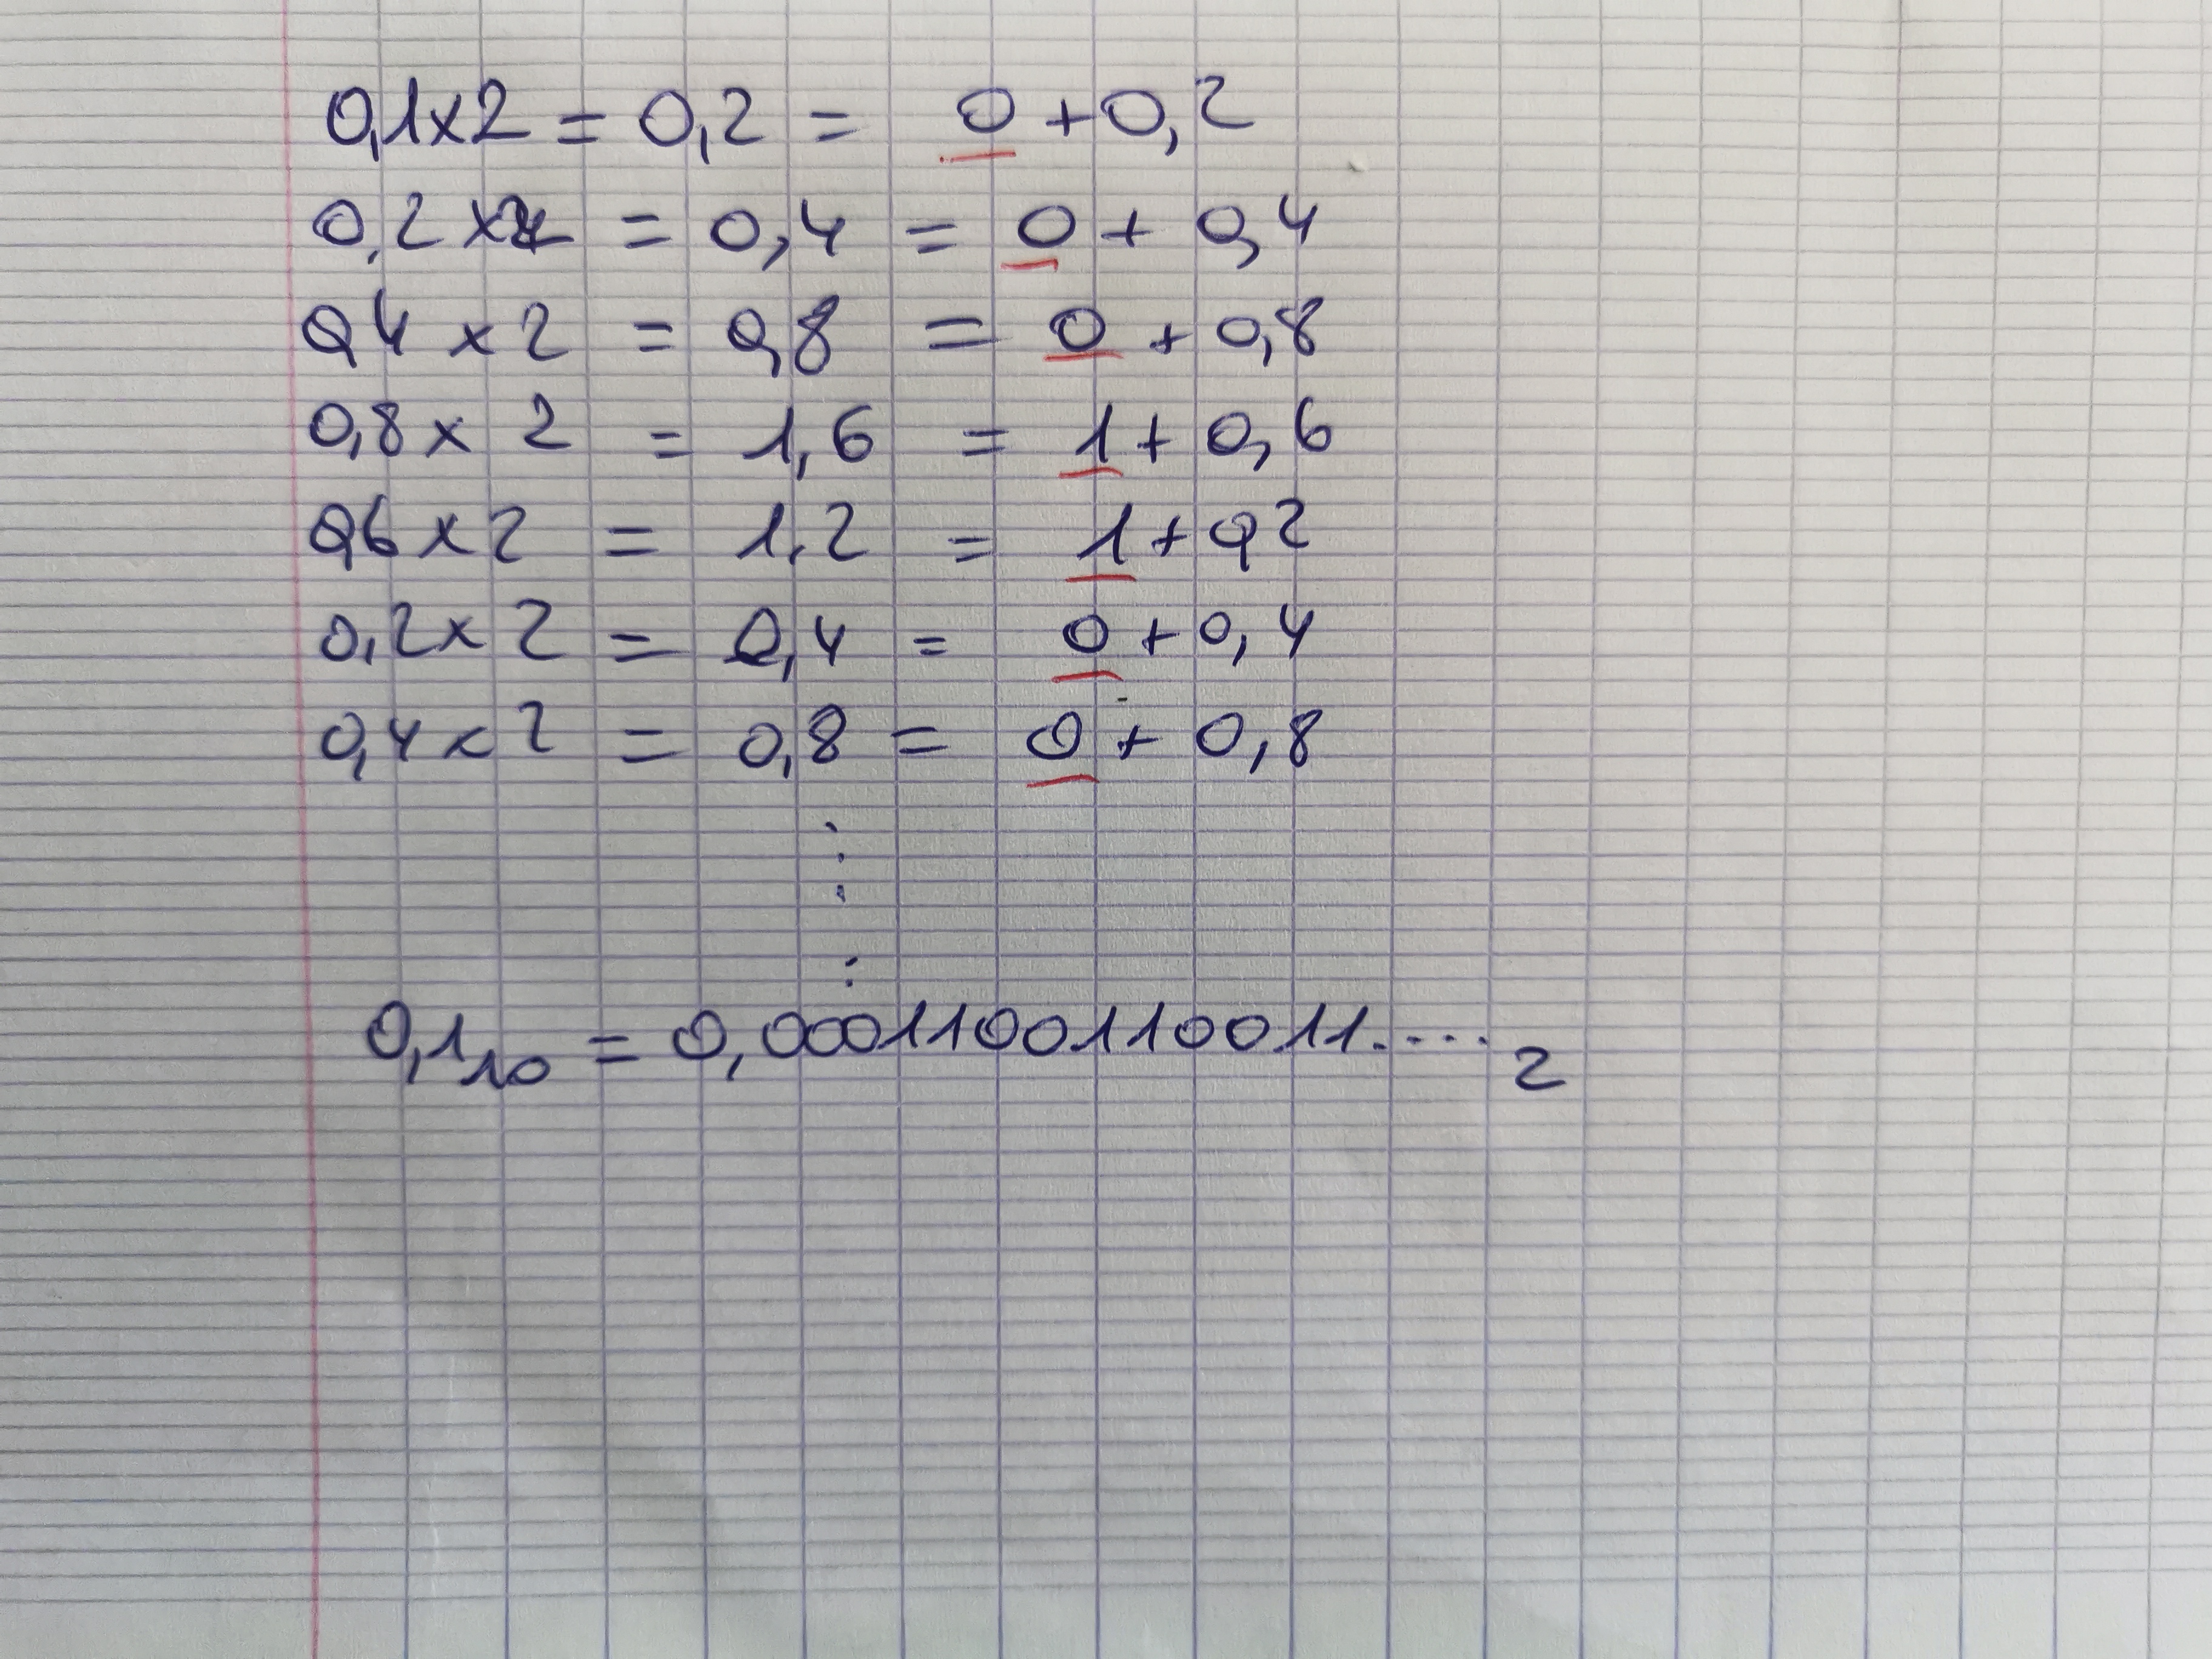 0,1x2 = 0,2 = 0 + 0,2
0,2 x2 = 0,4 = 0 + 0,4
0,4 x 2 = 0,8 = 0 + 0,8
0,8 x 2 = 1,6 = 1 + 0,6
0,6 x 2 = 1,2 = 1 + 0,2
0,2 x 2 = 0,4 = 0 + 0,4
0,4 x 2 = 0,8 = 0 + 0,8
⋮
0,1₁₀ = 0,0001100110011....₂